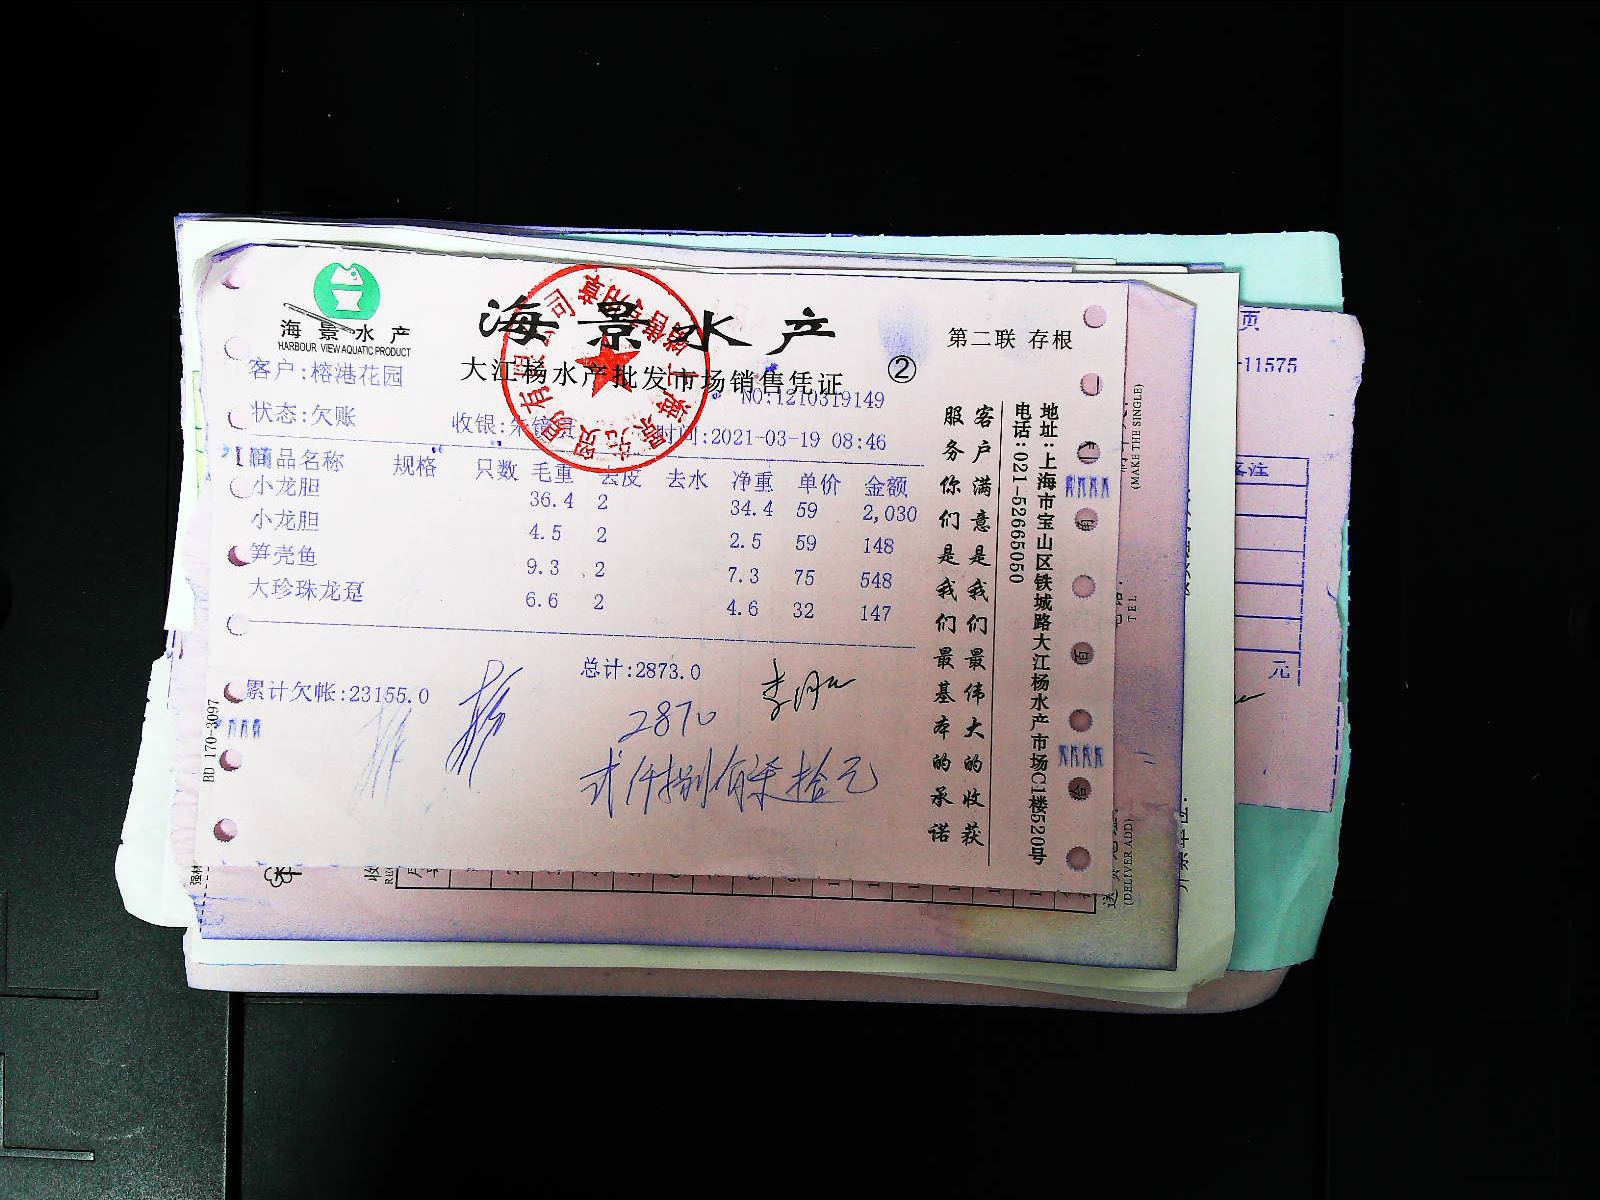 海景水产
HARBOUR VIEW AQUATIC PRODUCT
海景水产
第二联 存根
大江杨水产批发市场销售凭证 ②
客户:榕港花园
NO:1210319149
状态:欠账 收银: 时间:2021-03-19 08:46
商品名称 规格 只数 毛重 去皮 去水 净重 单价 金额
小龙胆 36.4 2 34.4 59 2,030
小龙胆 4.5 2 2.5 59 148
笋壳鱼 9.3 2 7.3 75 548
大珍珠龙趸 6.6 2 4.6 32 147
总计:2873.0
累计欠帐:23155.0
2870
弍仟捌佰柒拾元
客户满意是我们最伟大的收获
服务你们是我们最基本的承诺
地址:上海市宝山区铁城路大江杨水产市场C1楼520号
电话:021-52665050
BD 170-3097
销售专用章
(MAKE THE SINGLE)
TEL
(DELIVER ADD)
页
-11575
备注
元